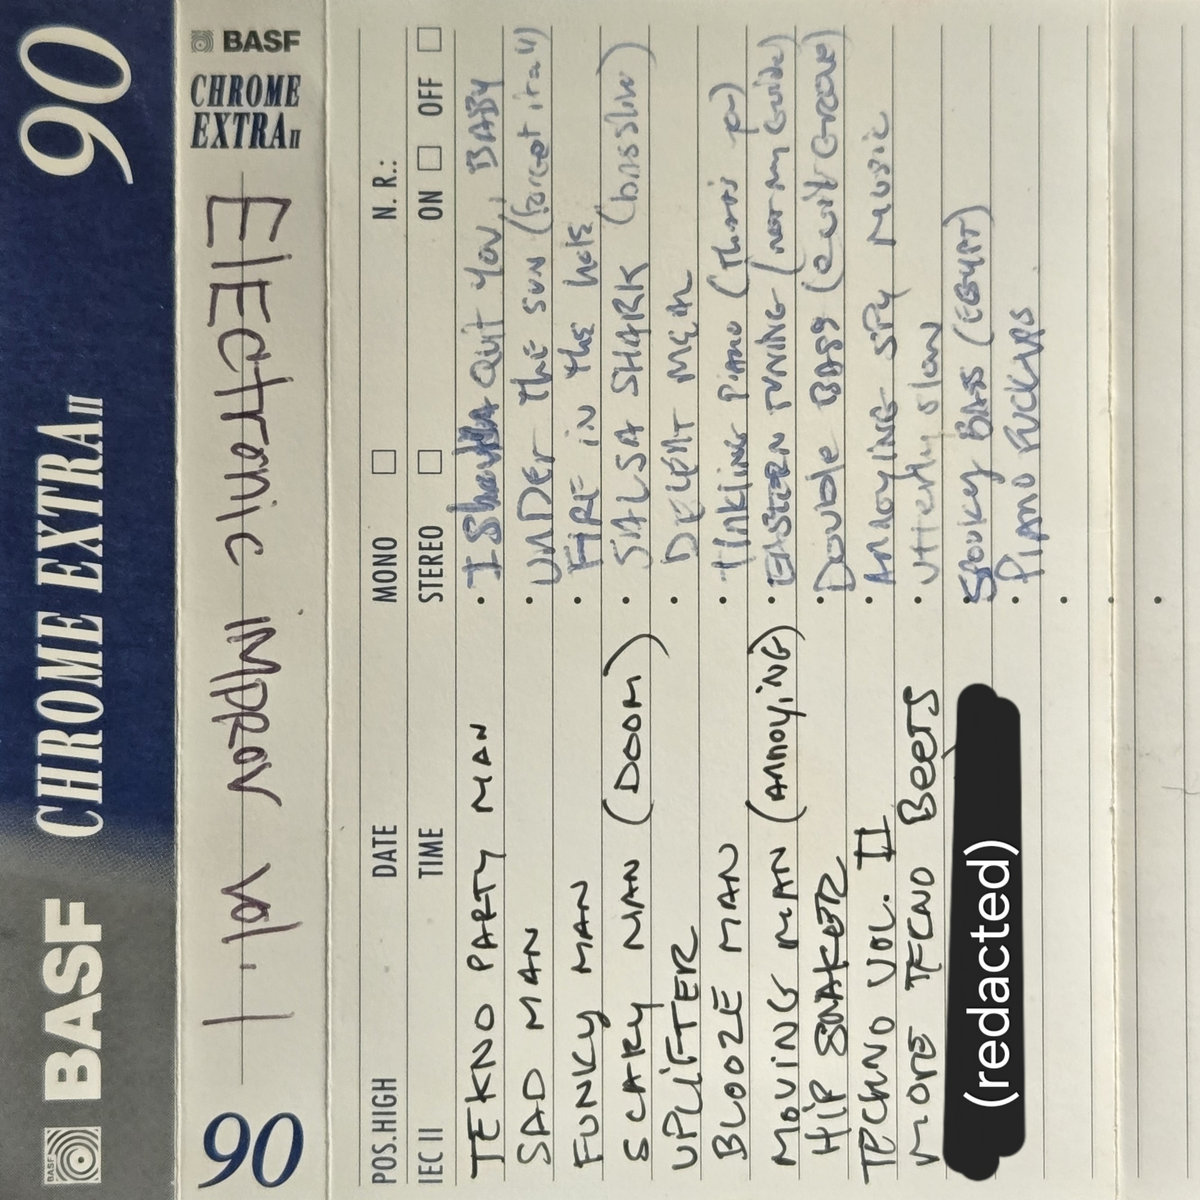 BASF CHROME EXTRA II 90
90 Electronic IMPROV Vol. 1 BASF CHROME EXTRA II
POS.HIGH DATE MONO N. R.:
IEC II TIME STEREO ON OFF
TEKNO PARTY MAN
SAD MAN
FUNKY MAN
SCARY MAN (DOOM)
UPLIFTER
BLOOZE MAN
MOVING MAN (ANNOYING)
HIP SHAKER
TECHNO VOL. II
MORE TECNO BEETS
(redacted)
• I Shoulda Quit You, BABY
• UNDER THE SUN (forget it all)
• FIRE IN THE hole
• SALSA SHARK (bass line)
• DELENT MEAL
• TINKLING PIANO (this is
• EASTERN TUNING (not my guide)
• Double BASS (evil GROOVE)
• ANNOYING SPY MUSIC
• utterly slow
• SPOOKY BASS (EGYPT)
• PIANO FUCKUPS